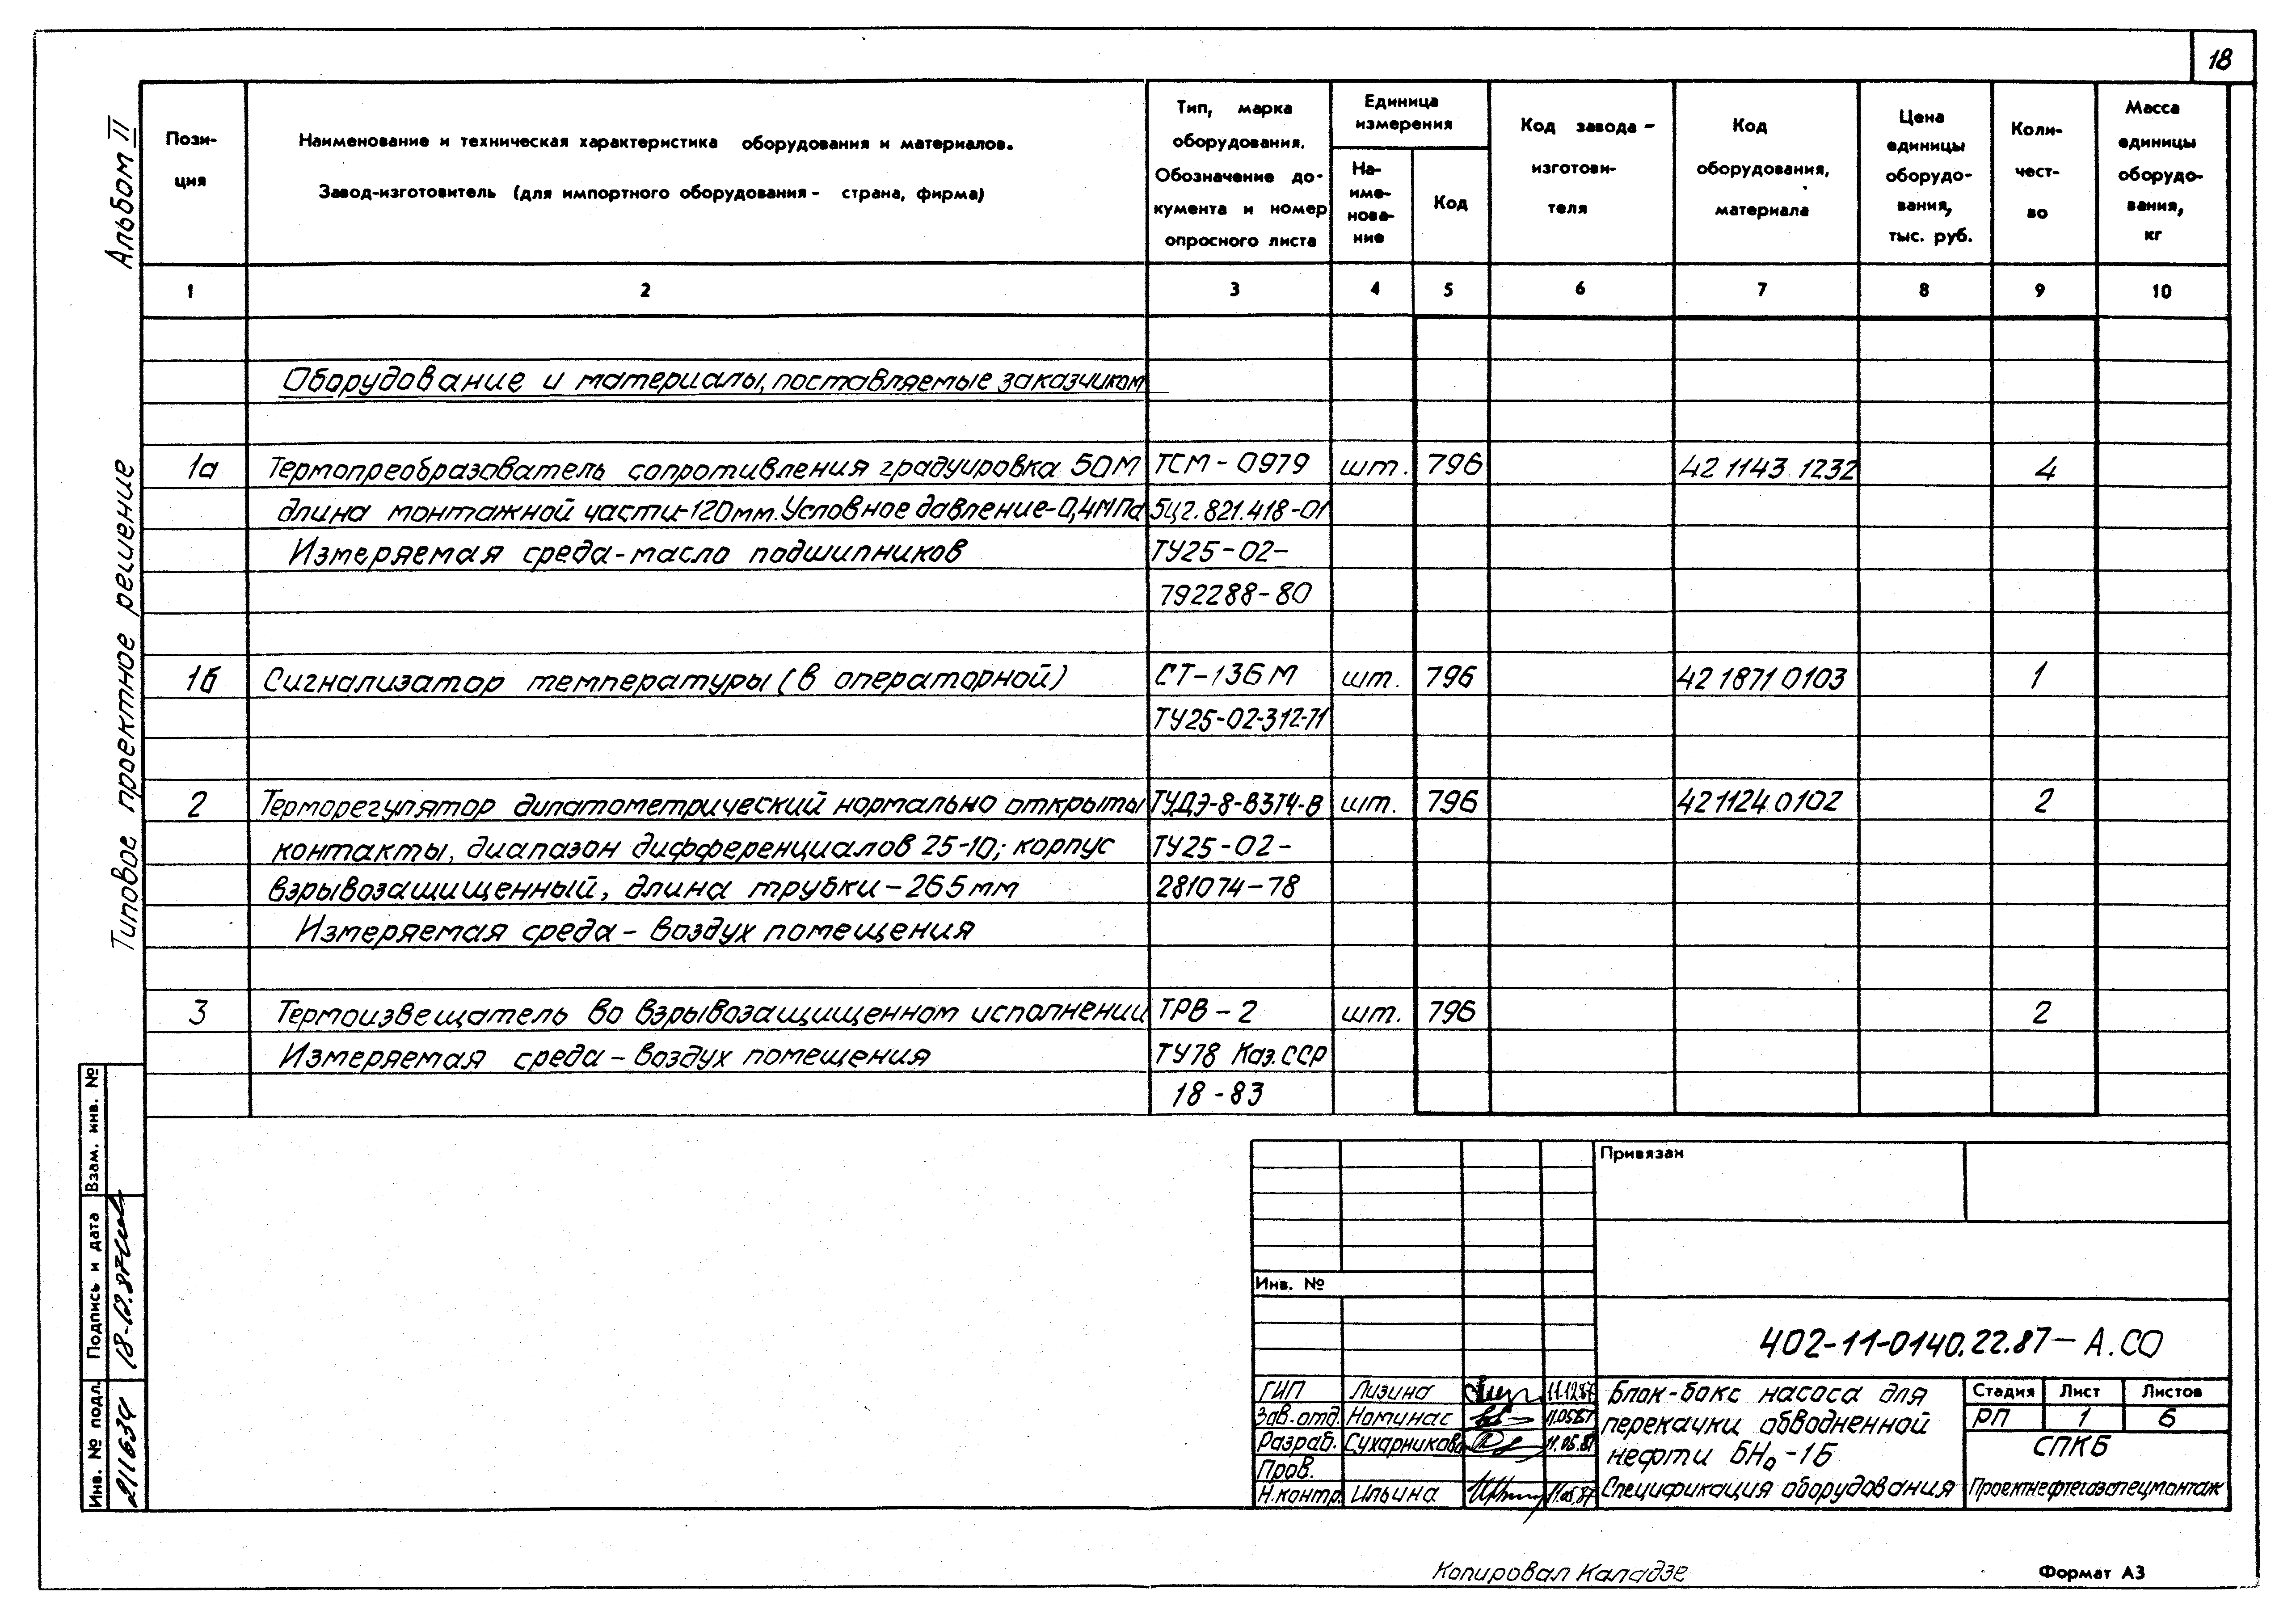 18
Альбом II
Типовое проектное решение
Пози-
ция
Наименование и техническая характеристика оборудования и материалов.
Завод-изготовитель (для импортного оборудования - страна, фирма)
Тип, марка
оборудования.
Обозначение до-
кумента и номер
опросного листа
Единица
измерения
На-
име-
нова-
ние
Код
Код завода -
изготови-
теля
Код
оборудования,
материала
Цена
единицы
оборудо-
вания,
тыс. руб.
Коли-
чест-
во
Масса
единицы
оборудо-
вания,
кг
1 2 3 4 5 6 7 8 9 10
Оборудование и материалы, поставляемые заказчиком
1а Термопреобразователь сопротивления градуировка 50М ТСМ-0979 шт. 796 42 1143 1232 4
длина монтажной части-120мм. Условное давление-0,4МПа 5Ц2.821.418-01
Измеряемая среда-масло подшипников ТУ25-02-
792288-80
1б Сигнализатор температуры (в операторной) СТ-136М шт. 796 42 1871 0103 1
ТУ25-02-312-71
2 Терморегулятор дилатометрический нормально открыты ТУДЭ-8-В3Т4-В шт. 796 42 1124 0102 2
контакты, диапазон дифференциалов 25-10; корпус ТУ25-02-
взрывозащищенный, длина трубки-265мм 281074-78
Измеряемая среда - воздух помещения
3 Термоизвещатель во взрывозащищенном исполнении ТРВ-2 шт. 796 2
Измеряемая среда - воздух помещения ТУ78 Каз.ССР
18-83
Взам. инв. №
Подпись и дата 18-12.87
Инв. № подл. 211634
Привязан
Инв. №
402-11-0140.22.87-А.СО
ГИП Лизина 11.12.87
Зав.отд. Номинас 11.05.87
Разраб. Сухарникова 11.05.87
Пров.
Н.контр. Ильина 11.05.87
Блок-бокс насоса для
перекачки обводненной
нефти БНо-1Б
Спецификация оборудования
Стадия Лист Листов
РП 1 6
СПКБ
Проектнефтегазспецмонтаж
Копировал Каладзе
Формат А3